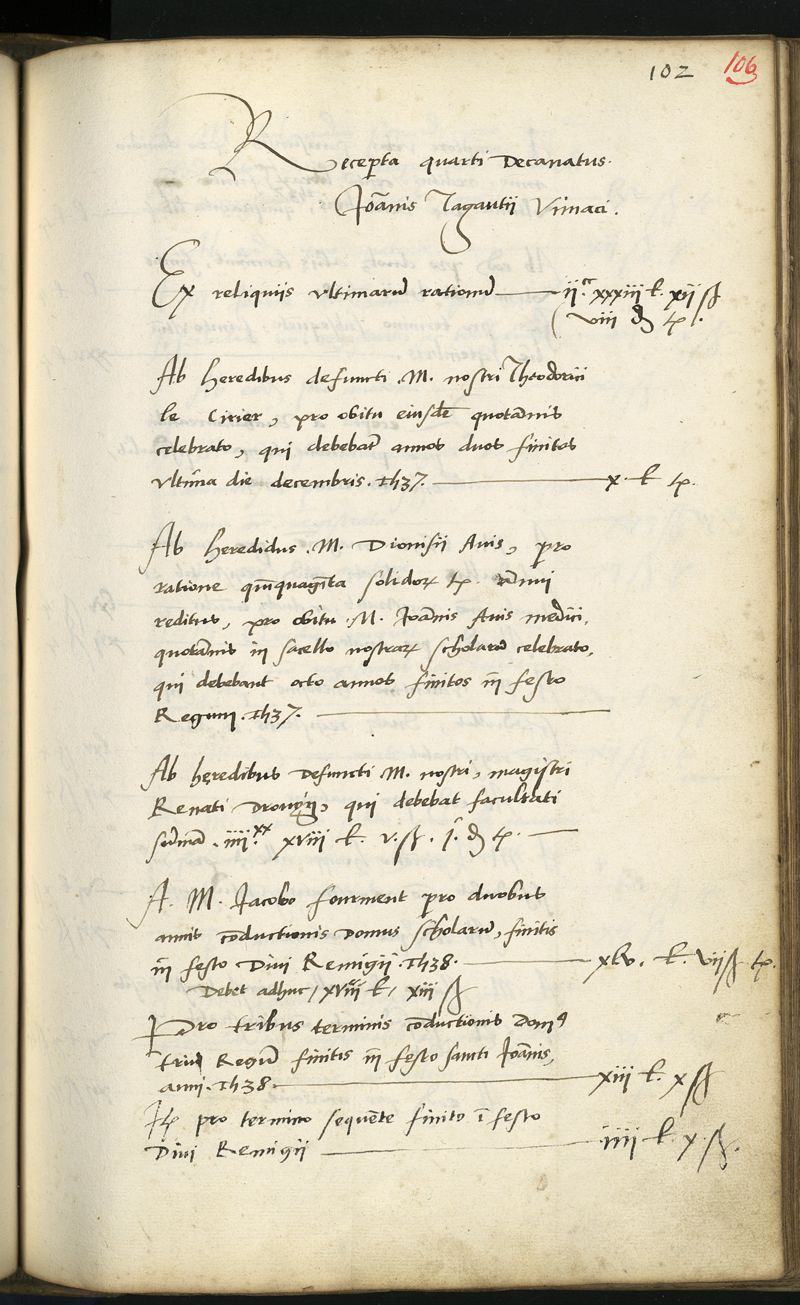 102 106
Recepta quarti Decanatus.
Joānis Tagautii Vimaci.
Ex reliquiis ultimarū rationū ii.c xxxiii l. xii ß
viii d t.
Ab heredibus defuncti .M. nostri Theodorici
le Cirier, pro obitu eiusdē quotānis
celebrato, qui debebāt annos duos finitos
ultima die decembris. 1537. x. l t.
Ab heredidus .M. Dionisii Avis, pro
ratione quīquagīta solidorꝝ t. ānui
reditus, pro obitu .M. Joānis Avis medici,
quotānis in sacello nostrarꝝ scholarū celebrato,
qui debebant octo annos finitos in festo
Regum. 1537.
Ab heredibus defuncti M. nostri, magistri
Renati Drouyn, qui debebat facultati
sūmā .iiii.xx xviii l. v. ß. i. d t.
A. M. Jacobo fourment pro duobus
annis cōductionis domus scholarū, finitis
in festo Divi Remigii. 1538. xlv. l. vii ß t.
Debet adhuc / xviii l / xiii ß
Pro tribus terminis cōductionis domꝰ
triū Regū finitis in festo sancti Joānis,
anni. 1538. xiii l. x ß
Itē pro termino sequēte finito ī festo
Divi Remigii iiii l x. ß.